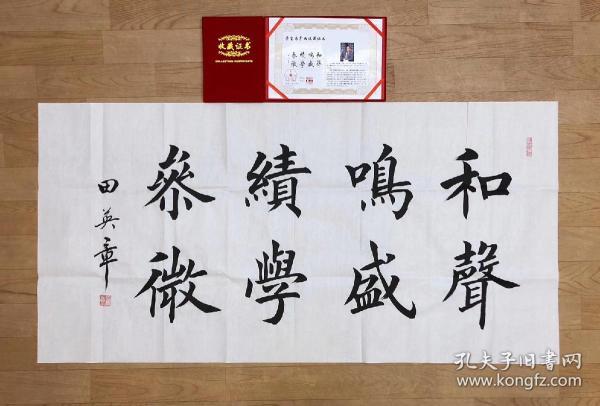 收藏证书
COLLECTION CERTIFICATE
和聲
鳴盛
績學
叅微
田英章
孔夫子旧书网
www.kongfz.com